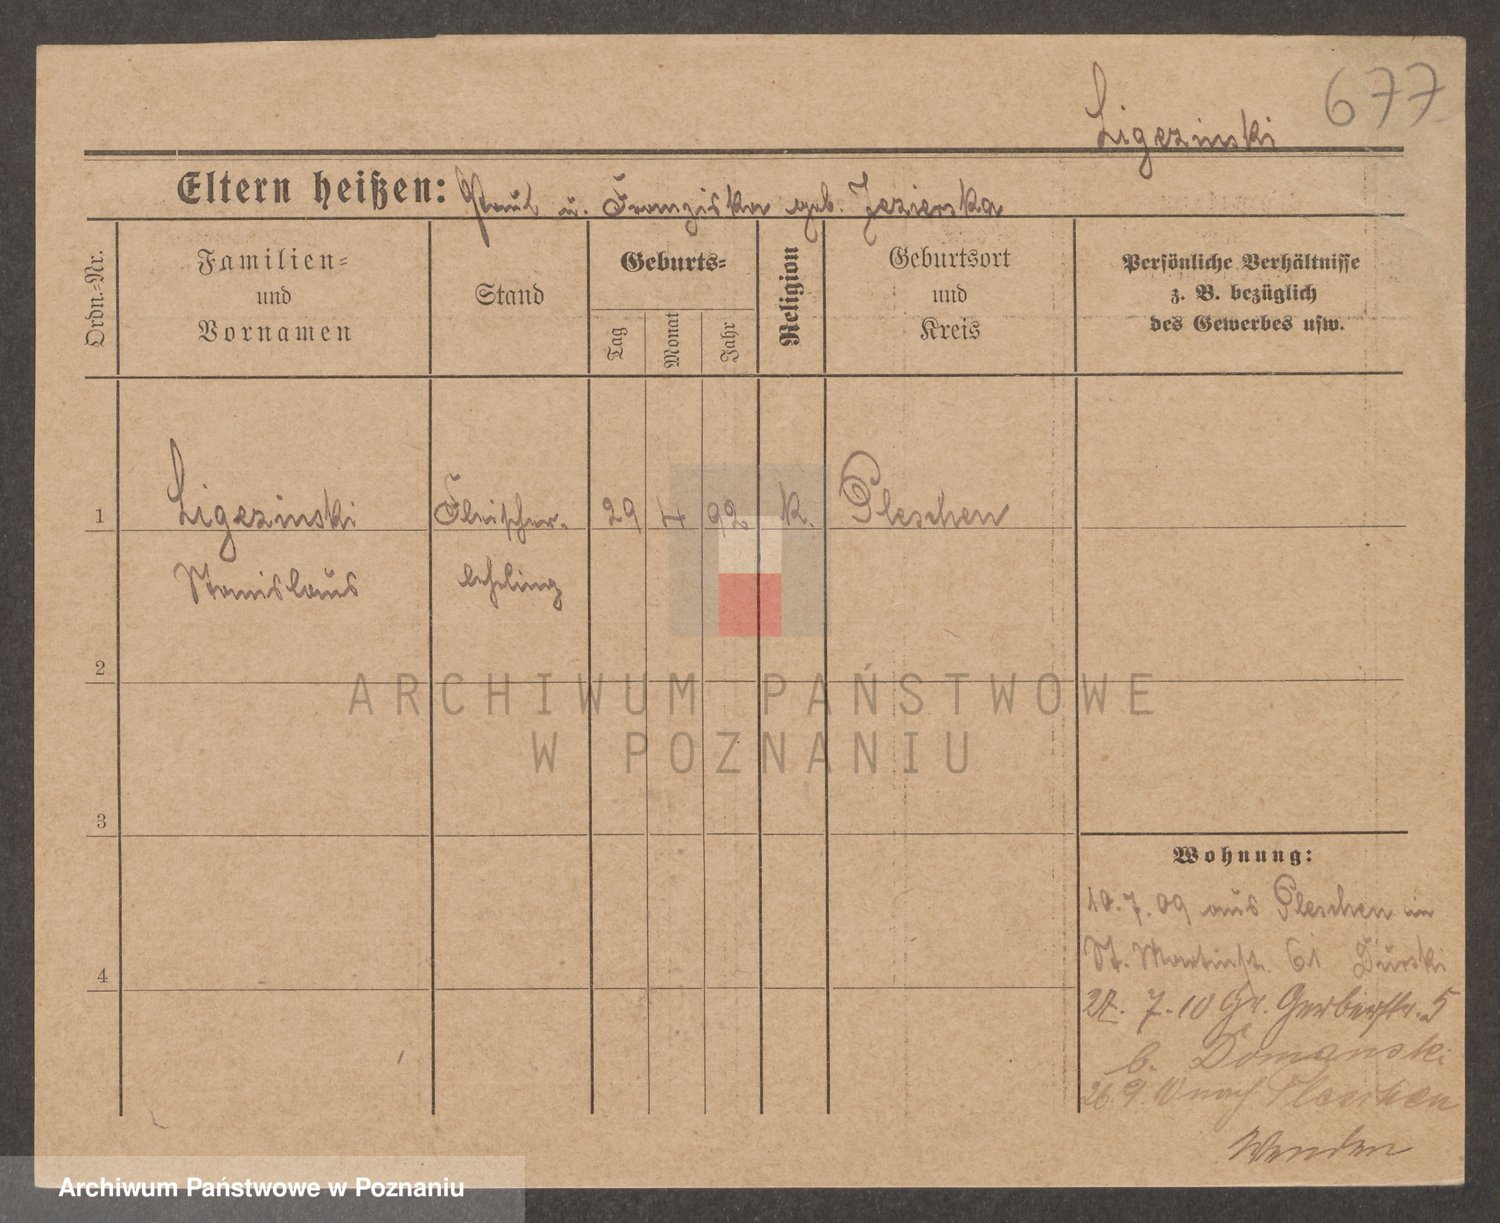 677
Ligezinski
Eltern heißen: Paul u. Franziska geb. Jezierska
Ordn.-Nr.
Familien-
und
Vornamen
Stand
Geburts-
Tag
Monat
Jahr
Religion
Geburtsort
und
Kreis
Persönliche Verhältnisse
z. B. bezüglich
des Gewerbes usw.
1 Ligezinski Fleischer- 29 4 92 K. Pleschen
Stanislaus lehrling
2
3
4
Wohnung:
10.7.09 aus Pleschen in
St. Martinstr. 61 Durski
27. 7. 10 Gr. Gerberstr. 5
b. Domanski
26. 9. 10 nach Pleschen
Wenden
ARCHIWUM PAŃSTWOWE
W POZNANIU
Archiwum Państwowe w Poznaniu